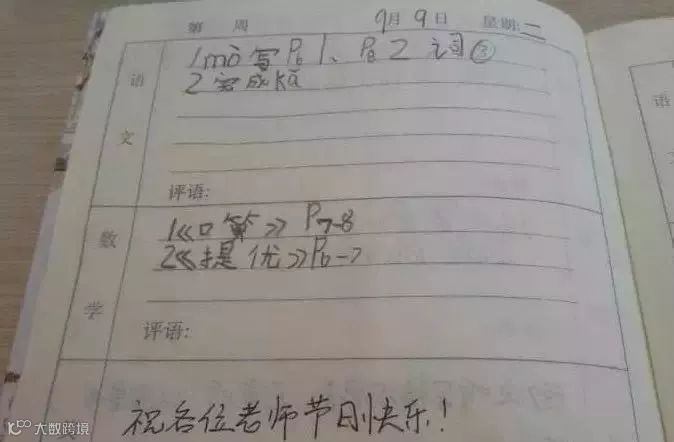 第 周 9月9日 星期:二
语文
1mò写P61、P82词③
2完成kǎ
评语:
数学
1《口算》P7-8
2《提优》P6-7
评语:
祝各位老师节日快乐!
大数跨境
语